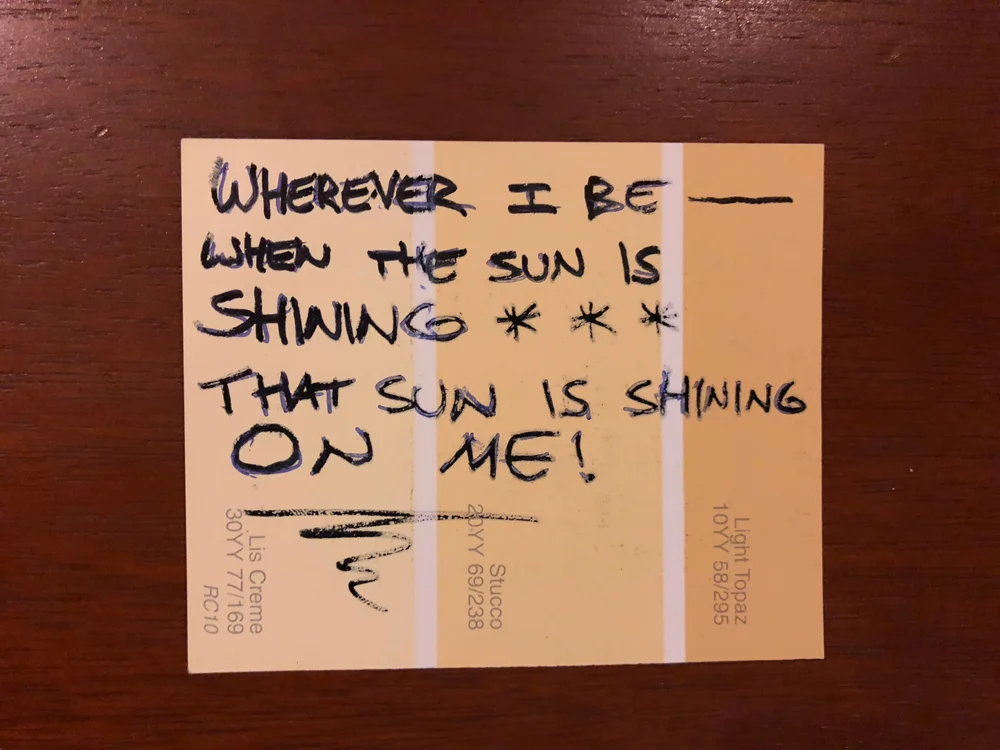 WHEREVER I BE —
WHEN THE SUN IS
SHINING * * *
THAT SUN IS SHINING
ON ME!
Lis Creme
30YY 77/169
RC10
Stucco
20YY 69/238
Light Topaz
10YY 58/295